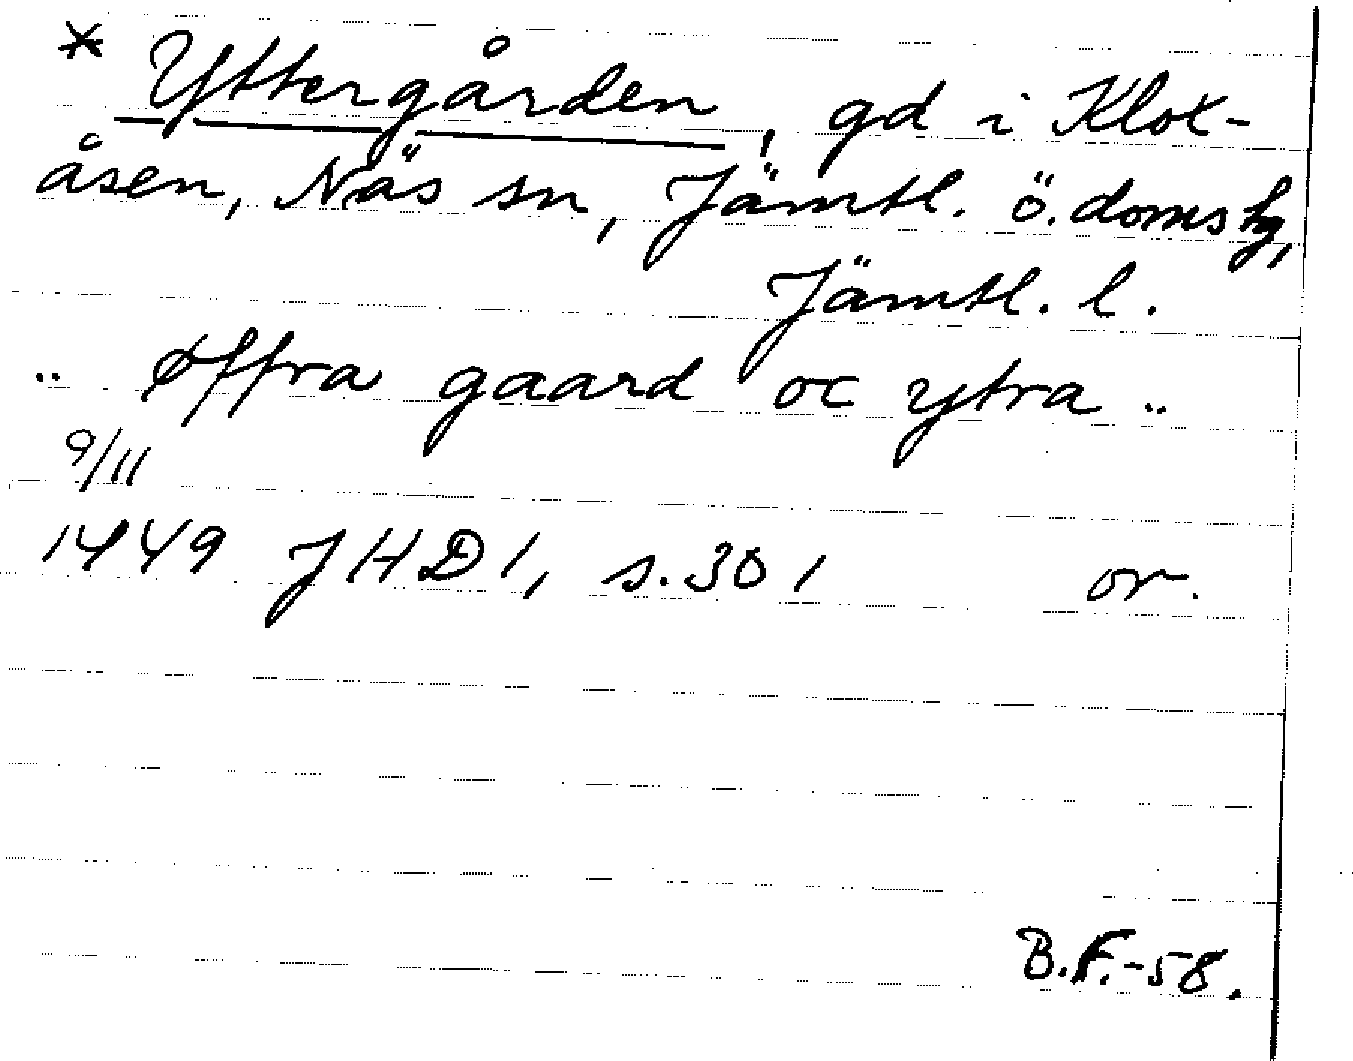 * Yttergården, gd i Klox-
åsen, Näs sn, Jämtl. ö. domsg,
Jämtl. l.
.. Øffra gaard oc ytra ..
9/11
1449 JHD 1, s. 301 or.
B.F.-58.